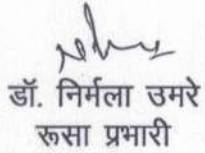 डॉ. निर्मला उमरे
रूसा प्रभारी